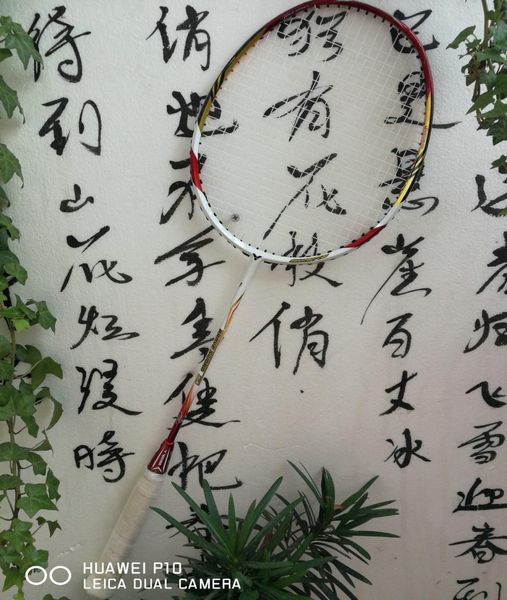 送春归飞雪迎春到
已是悬崖百丈冰
犹有花枝俏
俏也不争春只把
待到山花烂漫時
HUAWEI P10
LEICA DUAL CAMERA